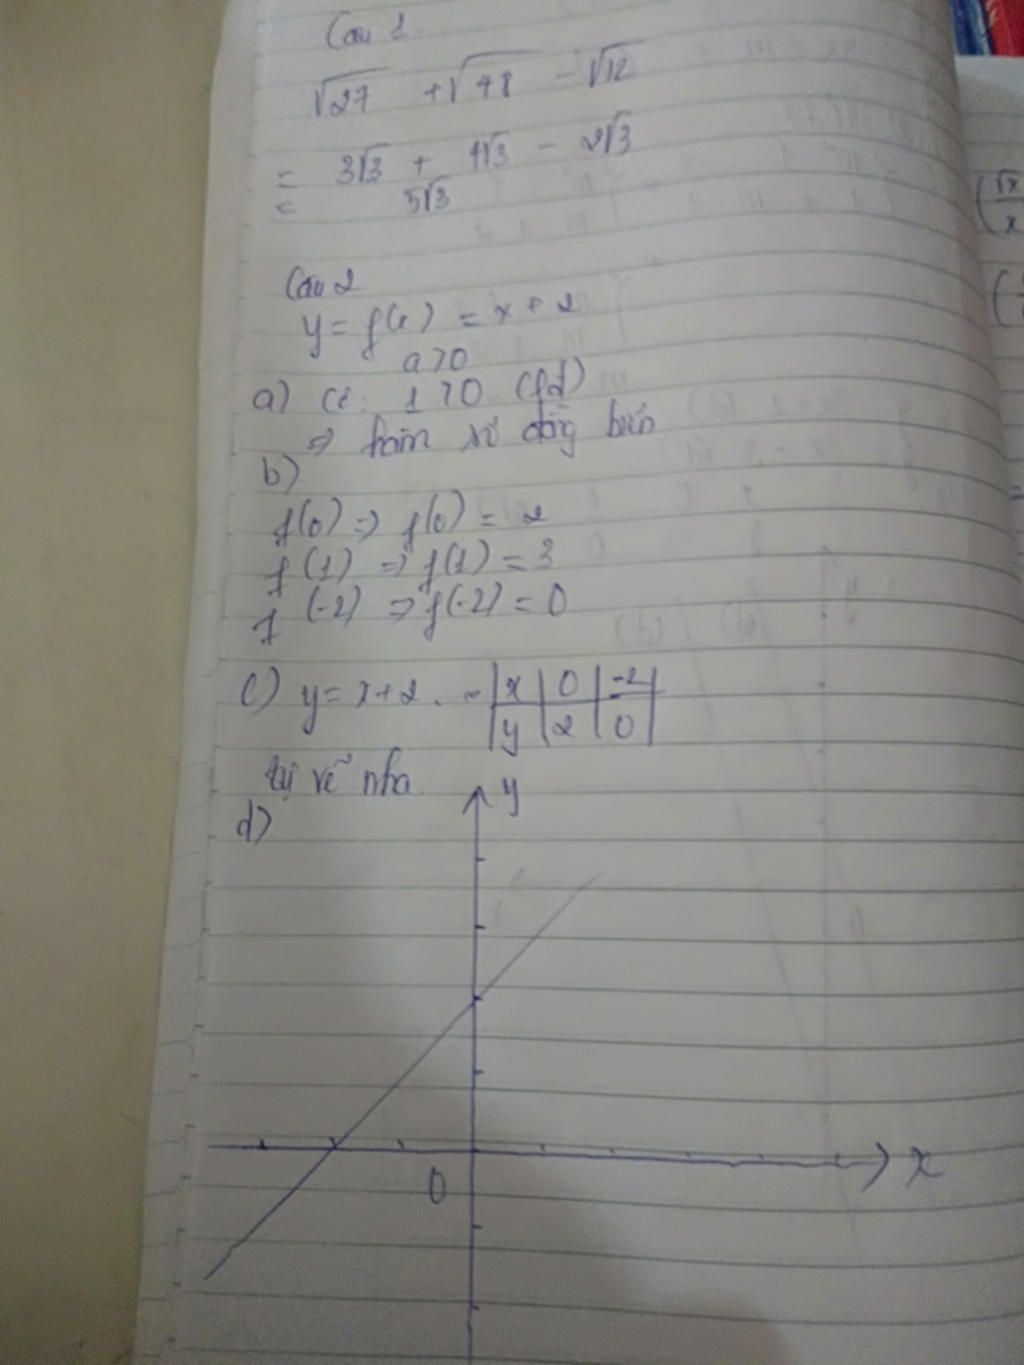 Câu 1
√27 + √48 - √12
= 3√3 + 4√3 - 2√3
= 5√3
Câu 2
y = f(x) = x + 2
a > 0
a) 1 > 0 (lđ)
=> hàm số đồng biến
b)
f(0) => f(0) = 2
f(1) => f(1) = 3
f(-2) => f(-2) = 0
c) y = x + 2. ~ | x | 0 | -2 |
| y | 2 | 0 |
tự vẽ nha
y
d)
0
x